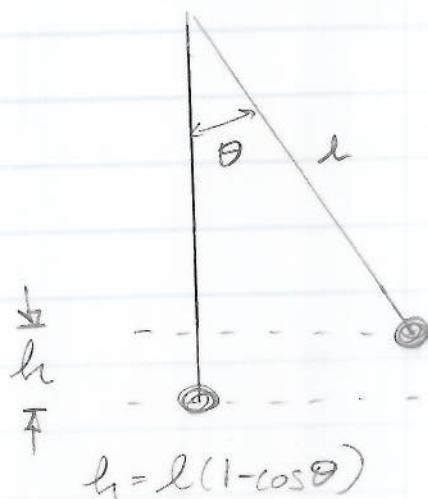 θ
l
h
h = l(1-cosθ)